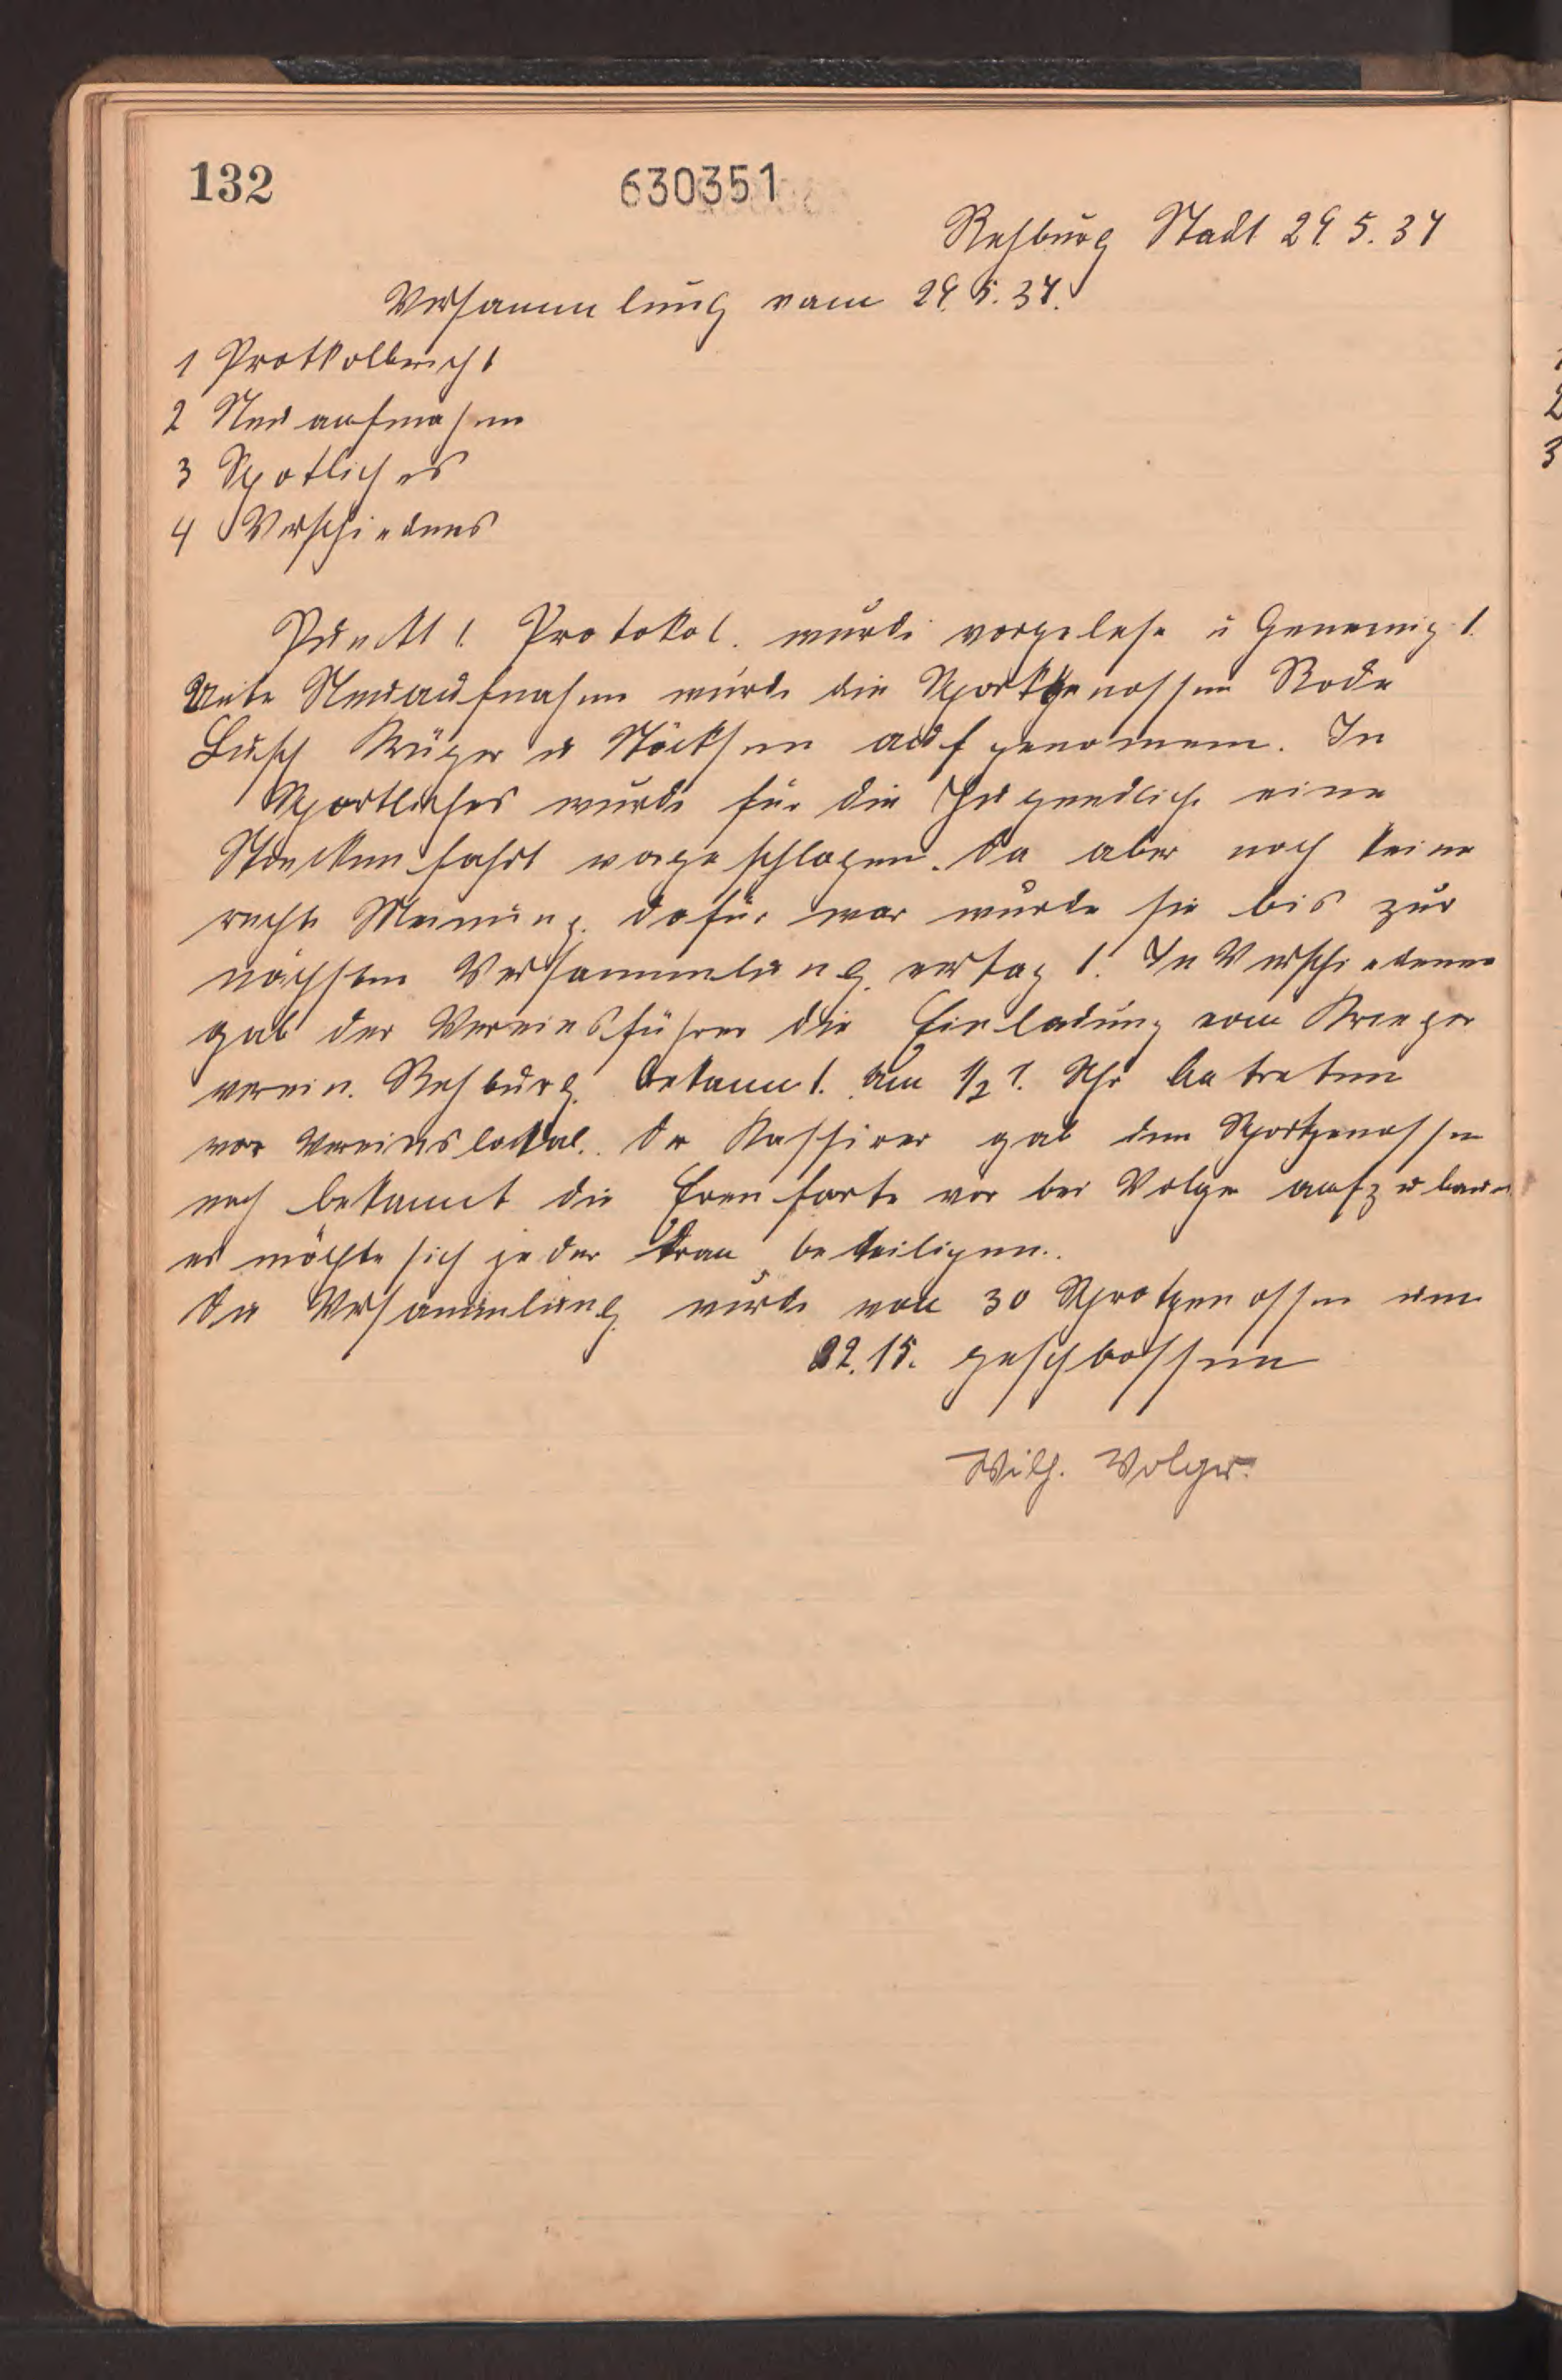 132
630351
Rehburg Stadt 29. 5. 37
Versammlung vom 29. 5. 37.
1 Protkolbericht
2 Neuaufnahme
3 Spotliches
4 Verschiednes
Punckt 1. Protokol. wurde vorgelese u Genemigt.
Unte Neuaufnahme wurde die Sportgenossen Rode
Busch Krüger u Nöcksen aufgenomen. In
Sportliches wurde für die Jugendliche eine
Streckenfahrt vorgeschlagen. Da aber noch keine
rechte Meinung dafür war wurde sie bis zur
nächsten Versammlung vertagt. In Verschiedenes
gab der Vereinsführer die Einladung vom Krieger
verein. Rehburg. bekannt. um 1/2 1. Uhr antreten
vor Vereinslokal. Der Kassirer gab den Sportgenossen
noch bekannt die Erenforte vor bei Volger aufzubauen
es möchte sich jeder dran beteiligen.
Die Versammlung wurde von 30 Sprotgenossen um
22.15. geschlossen
Wilh. Volger.
1
2
3